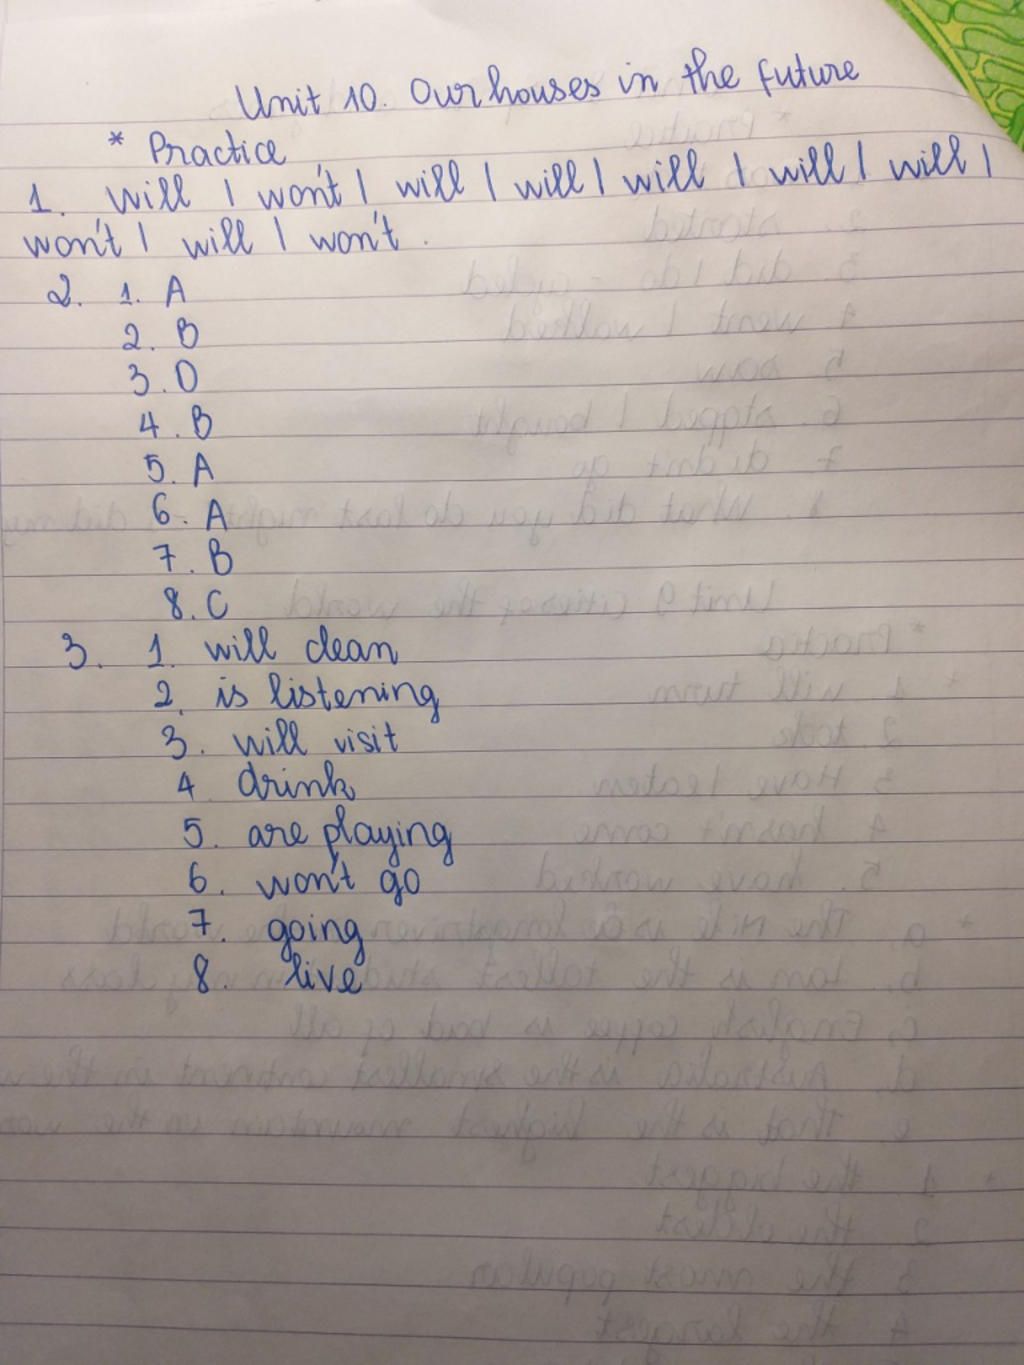 Unit 10. Our houses in the future
* Practice
1. will / won't / will / will / will / will / will /
won't / will / won't.
2. 1. A
2. B
3. D
4. B
5. A
6. A
7. B
8. C
3. 1. will clean
2. is listening
3. will visit
4 drink
5. are playing
6. won't go
7. going
8. live